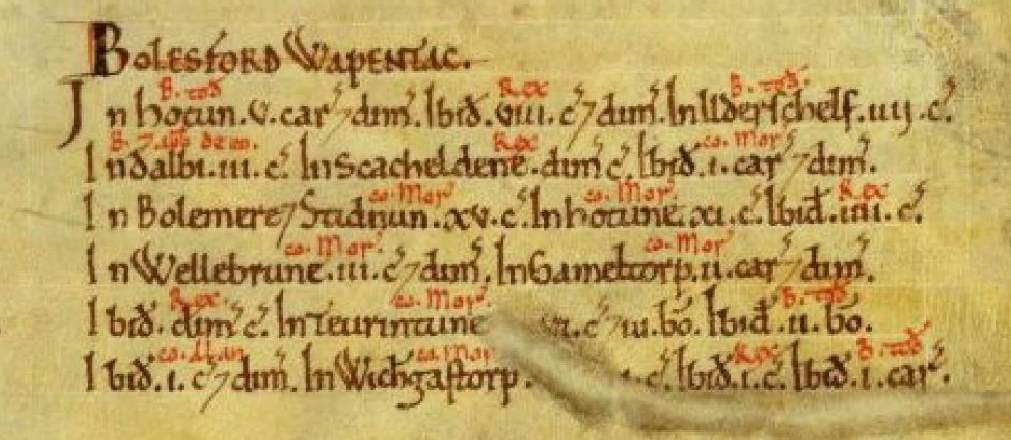 Bolesford Wapentac.
B. tod̃ Rex B. tod̃.
In hotun. v. car̃ ⁊ dim̃. Ibid̃. viii. c̃ ⁊ dim̃. In Ilderschelf. iiij. c̃.
B. ⁊ Rex co. Mor̃
In dalbi. iii. c̃. In Scacheldene. dim̃ c̃. Ibid̃. i. car̃ ⁊ dim̃.
co. Mor̃ co. Mor̃ Rex
In Bolemere ⁊ Stidnun. xv. c̃. In hotune. xi. c̃. Ibid̃. iiii. c̃.
co. Mor̃ co. Mor̃
In Wellebrune. iii. c̃ ⁊ dim̃. In Gameltorp. ii. car̃ ⁊ dim̃.
Rex. co. Mor̃ B. tod̃
Ibid̃. dim̃ c̃. In Teurintune c̃ ⁊ iii. bõ. Ibid̃. ii. bõ.
co. Alan co. Mor̃ Rex B. tod̃
Ibid̃. i. c̃ ⁊ dim̃. In Wichgastorp. c̃. Ibid̃. i. c̃. Ibid̃. i. car̃.